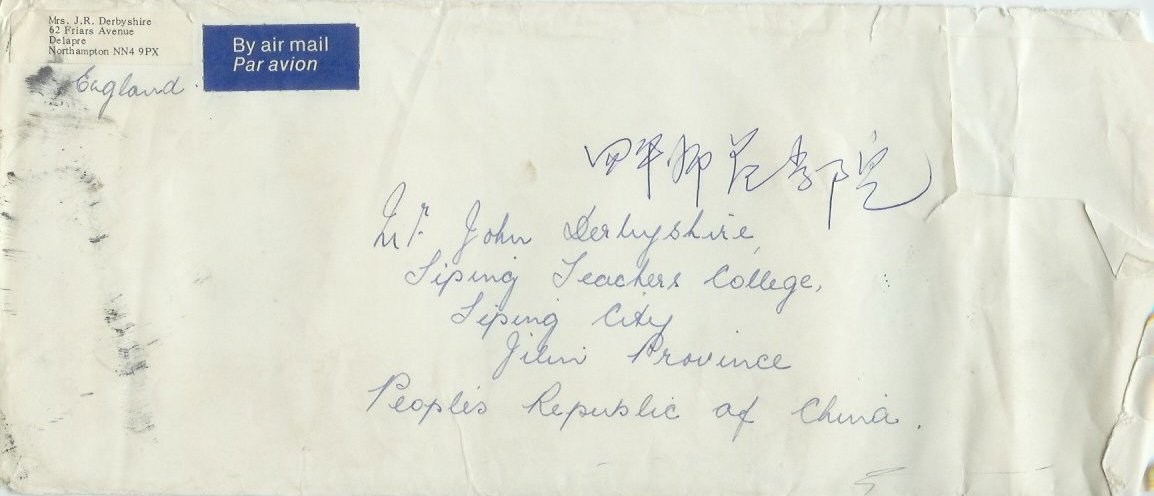 Mrs. J.R. Derbyshire
62 Friars Avenue
Delapre
Northampton NN4 9PX
England.
By air mail
Par avion
四平师范学院
Mr. John Derbyshire,
Siping Teachers College,
Siping City
Jilin Province
People's Republic of China.